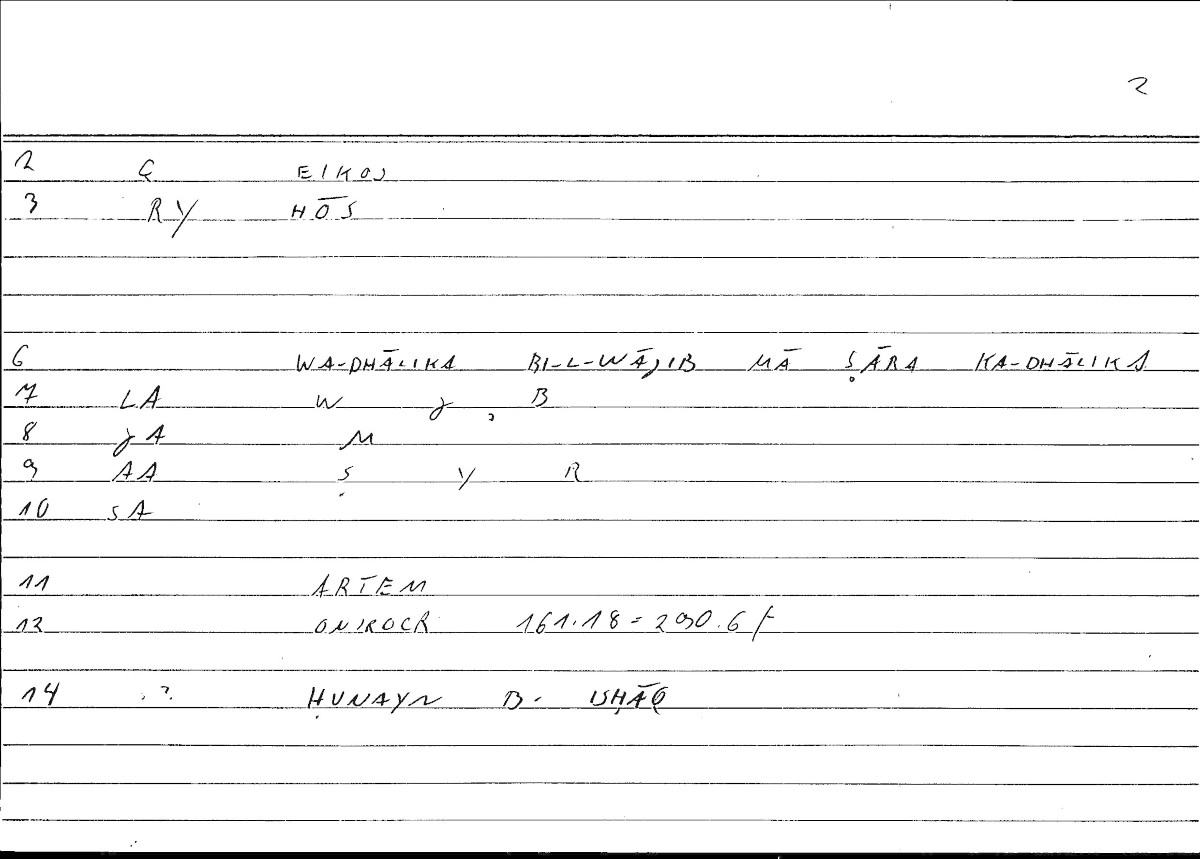 2
2 G EIKOS
3 RY HŌS
6 WA-DHĀLIKA BI-L-WĀJIB MĀ ṢĀRA KA-DHĀLIKA
7 LA W J , B
8 JA M
9 AA Ṣ Y R
10 SA
11 ARTEM
12 ONIROCR 161.18 = 290.6 f
14 ? ḤUNAYN B. ISḤĀQ